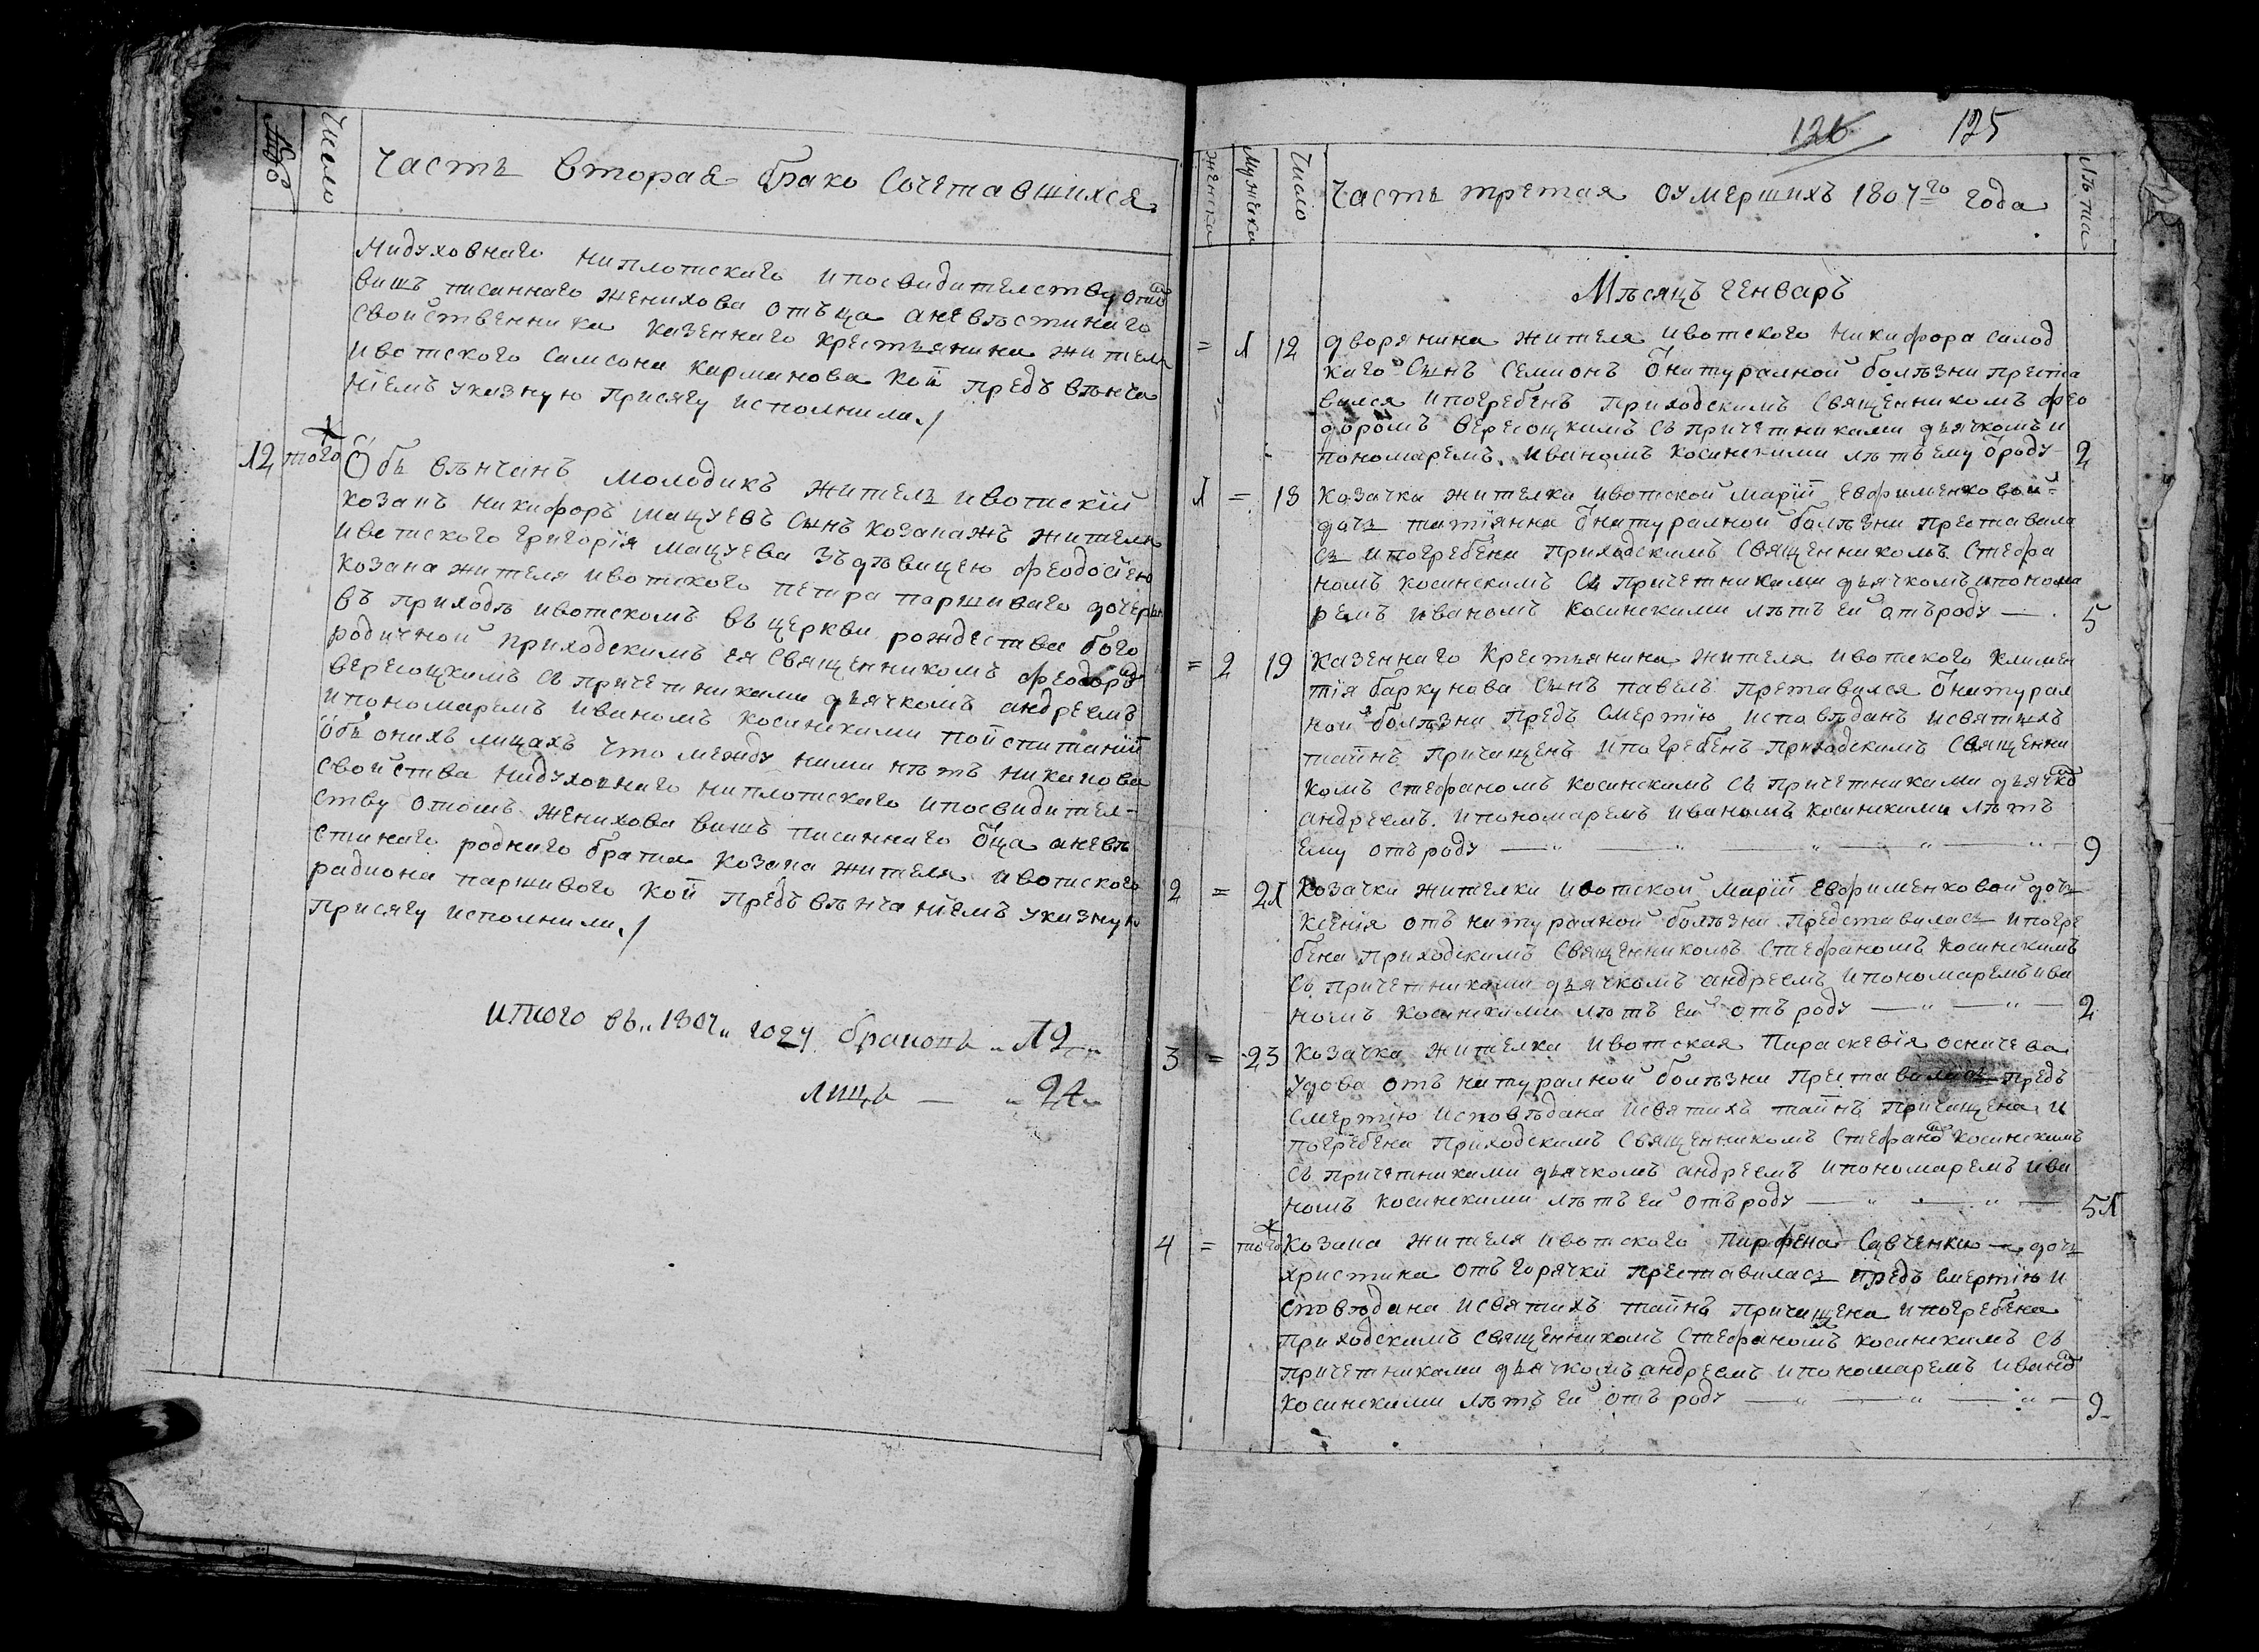 Число
Часть вторая брако сочетавшихся
нидуховнаго ниплотскаго ипосвидителству отом
вишъ писаннаго женихова отъца аневѣстинаго
свойственника казеннаго крестьянина жителя
ивотского самсона карманова кой предъ вѣнча
ніемъ указную присягу исполнили./
12 того Объ вѣнчанъ молодикъ житель ивотскій
козакъ никифоръ мацуевъ сынъ козакажъ жителя
ивотского григорія мацуева зъ дѣвицею феодосіею
козака жителя ивотского петра паршиваго дочерью
въ приходѣ ивотскомъ въ церкви рождества бого
родичной приходскимъ ея священникомъ феодором
верегоцкимъ съ причетниками дьячкомъ андреемъ
ипономаремъ иваномъ косинскими поиспитаніи
объ онихъ лицахъ что между ними нѣтъ никакова
свойства нидуховнаго ниплотскаго ипосвидител-
ству отомъ женихова вишъ писаннаго оца аневѣ
стинаго роднаго братта козака жителя ивотского
радиона паршивого кой предъ вѣнчаніемъ указную
присягу исполнили./
итого въ „1807„ году браковъ „12„
лицъ — „24„
126 125
женска
мужеска
Число
Часть третая оумершихъ 1807го года
лѣта
Мѣсяцъ генваръ
= 1 12 дворянина жителя ивотского никифора силод
каго сынъ семионъ онатуралной болѣзни преста
вился ипогребенъ приходскимъ священникомъ фео
доромъ верегоцкимъ съ причетниками дьячкомъ и
пономаремъ иваномъ косинскими лѣтъ ему ороду 2
1 = 18 козачки жителки ивотской маріи ефименковой
дочь татіянна онатуралной болѣзни преставила
сь ипогребена приходскимъ священникомъ стефа
номъ косинскимъ съ причетниками дьячкомъ ипонома
ремъ иваномъ косинскими лѣтъ ей отъроду — 5
= 2 19 казеннаго крестьянина жителя ивотского климен
тія баркунова сынъ павелъ преставился онатурал
ной болѣзни предъ смертію исповѣданъ исвятыхъ
таинъ причищенъ ипогребенъ приходскимъ священни
комъ стефаномъ косинскимъ съ причетниками дьячком
андреемъ ипономаремъ иваномъ косинскими лѣтъ
ему отъроду — 9
2 = 21 козачки жителки ивотской маріи ефименковой дочь
ксенія отъ натуралной болѣзни представилась ипогре
бена приходскимъ священникомъ стефаномъ косинскимъ
съ причетниками дьячкомъ андреемъ ипономаремъ ива
номъ косинскими лѣтъ ей отъ роду — 2
3 = 23 козачка жителка ивотская параскевія осичева
удова отъ натуралной болѣзни преставилась предъ
смертію исповѣдана исвятихъ таинъ причищена и
погребена приходскимъ священникомъ стефаном косинскимъ
съ причетниками дьячкомъ андреемъ ипономаремъ ива
номъ косинскими лѣтъ ей отъроду — 51
4 = того козака жителя ивотского парфена савченка — дочь
христина отъ горячки преставилась предъ смертію и
сповѣдана исвятихъ таинъ причищена ипогребена
приходскимъ священникомъ стефаномъ косинскимъ съ
причетниками дьячкомъ андреемъ ипономаремъ иваном
косинскими лѣтъ ей отъ роду — 9